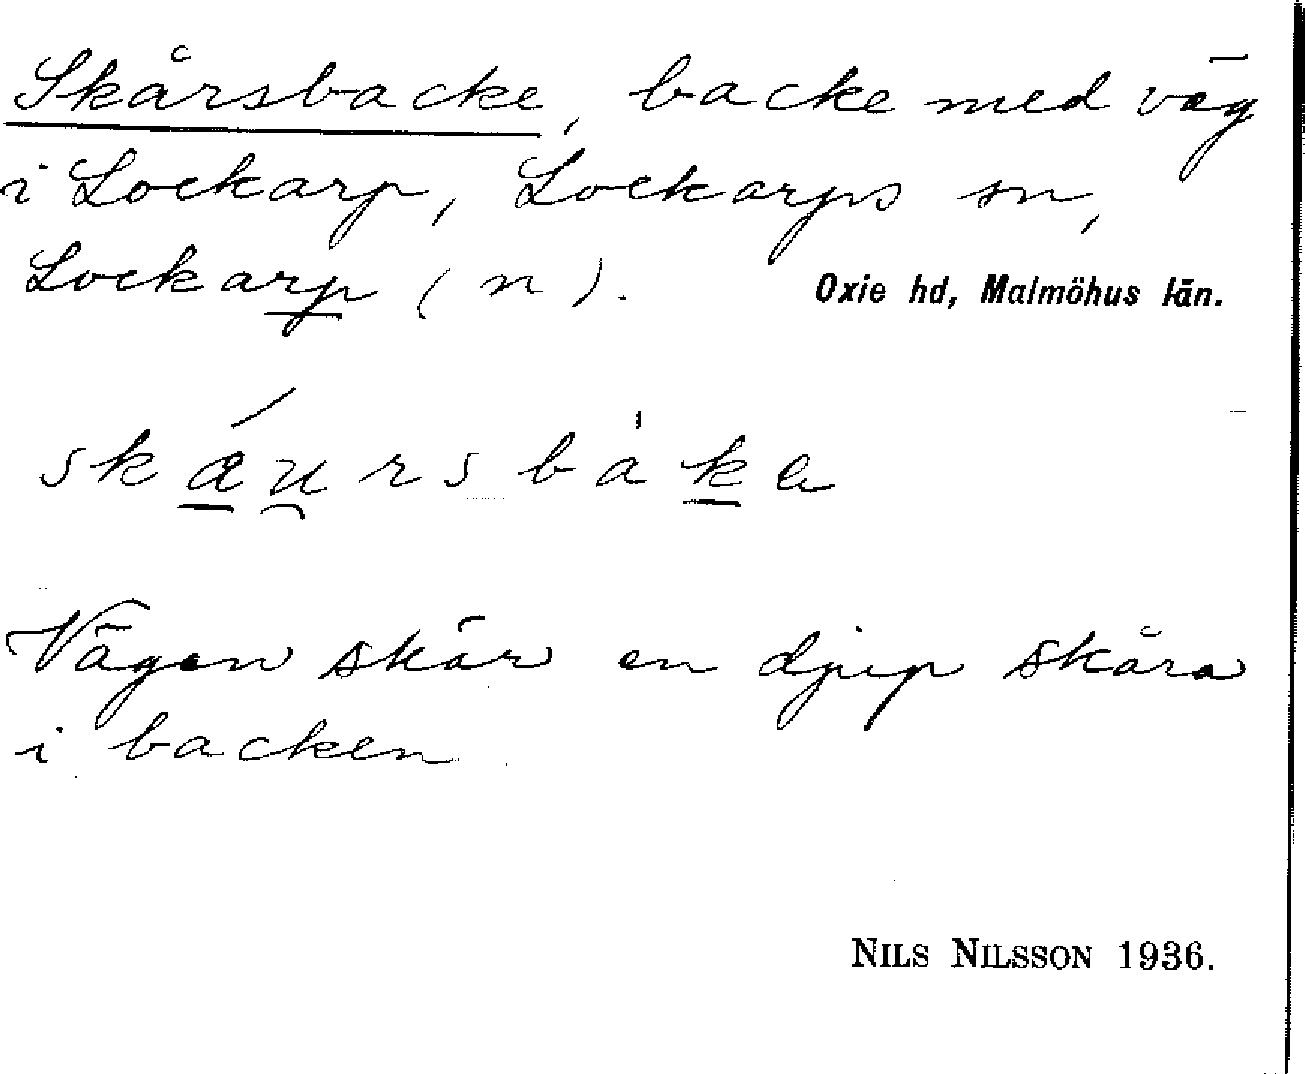 Skårsbacke, backe med väg
i Lockarp, Lockarps sn,
Lockarp (n). Oxie hd, Malmöhus län.
skæursbaka
Vägen skär en djup skåra
i backen
NILS NILSSON 1936.